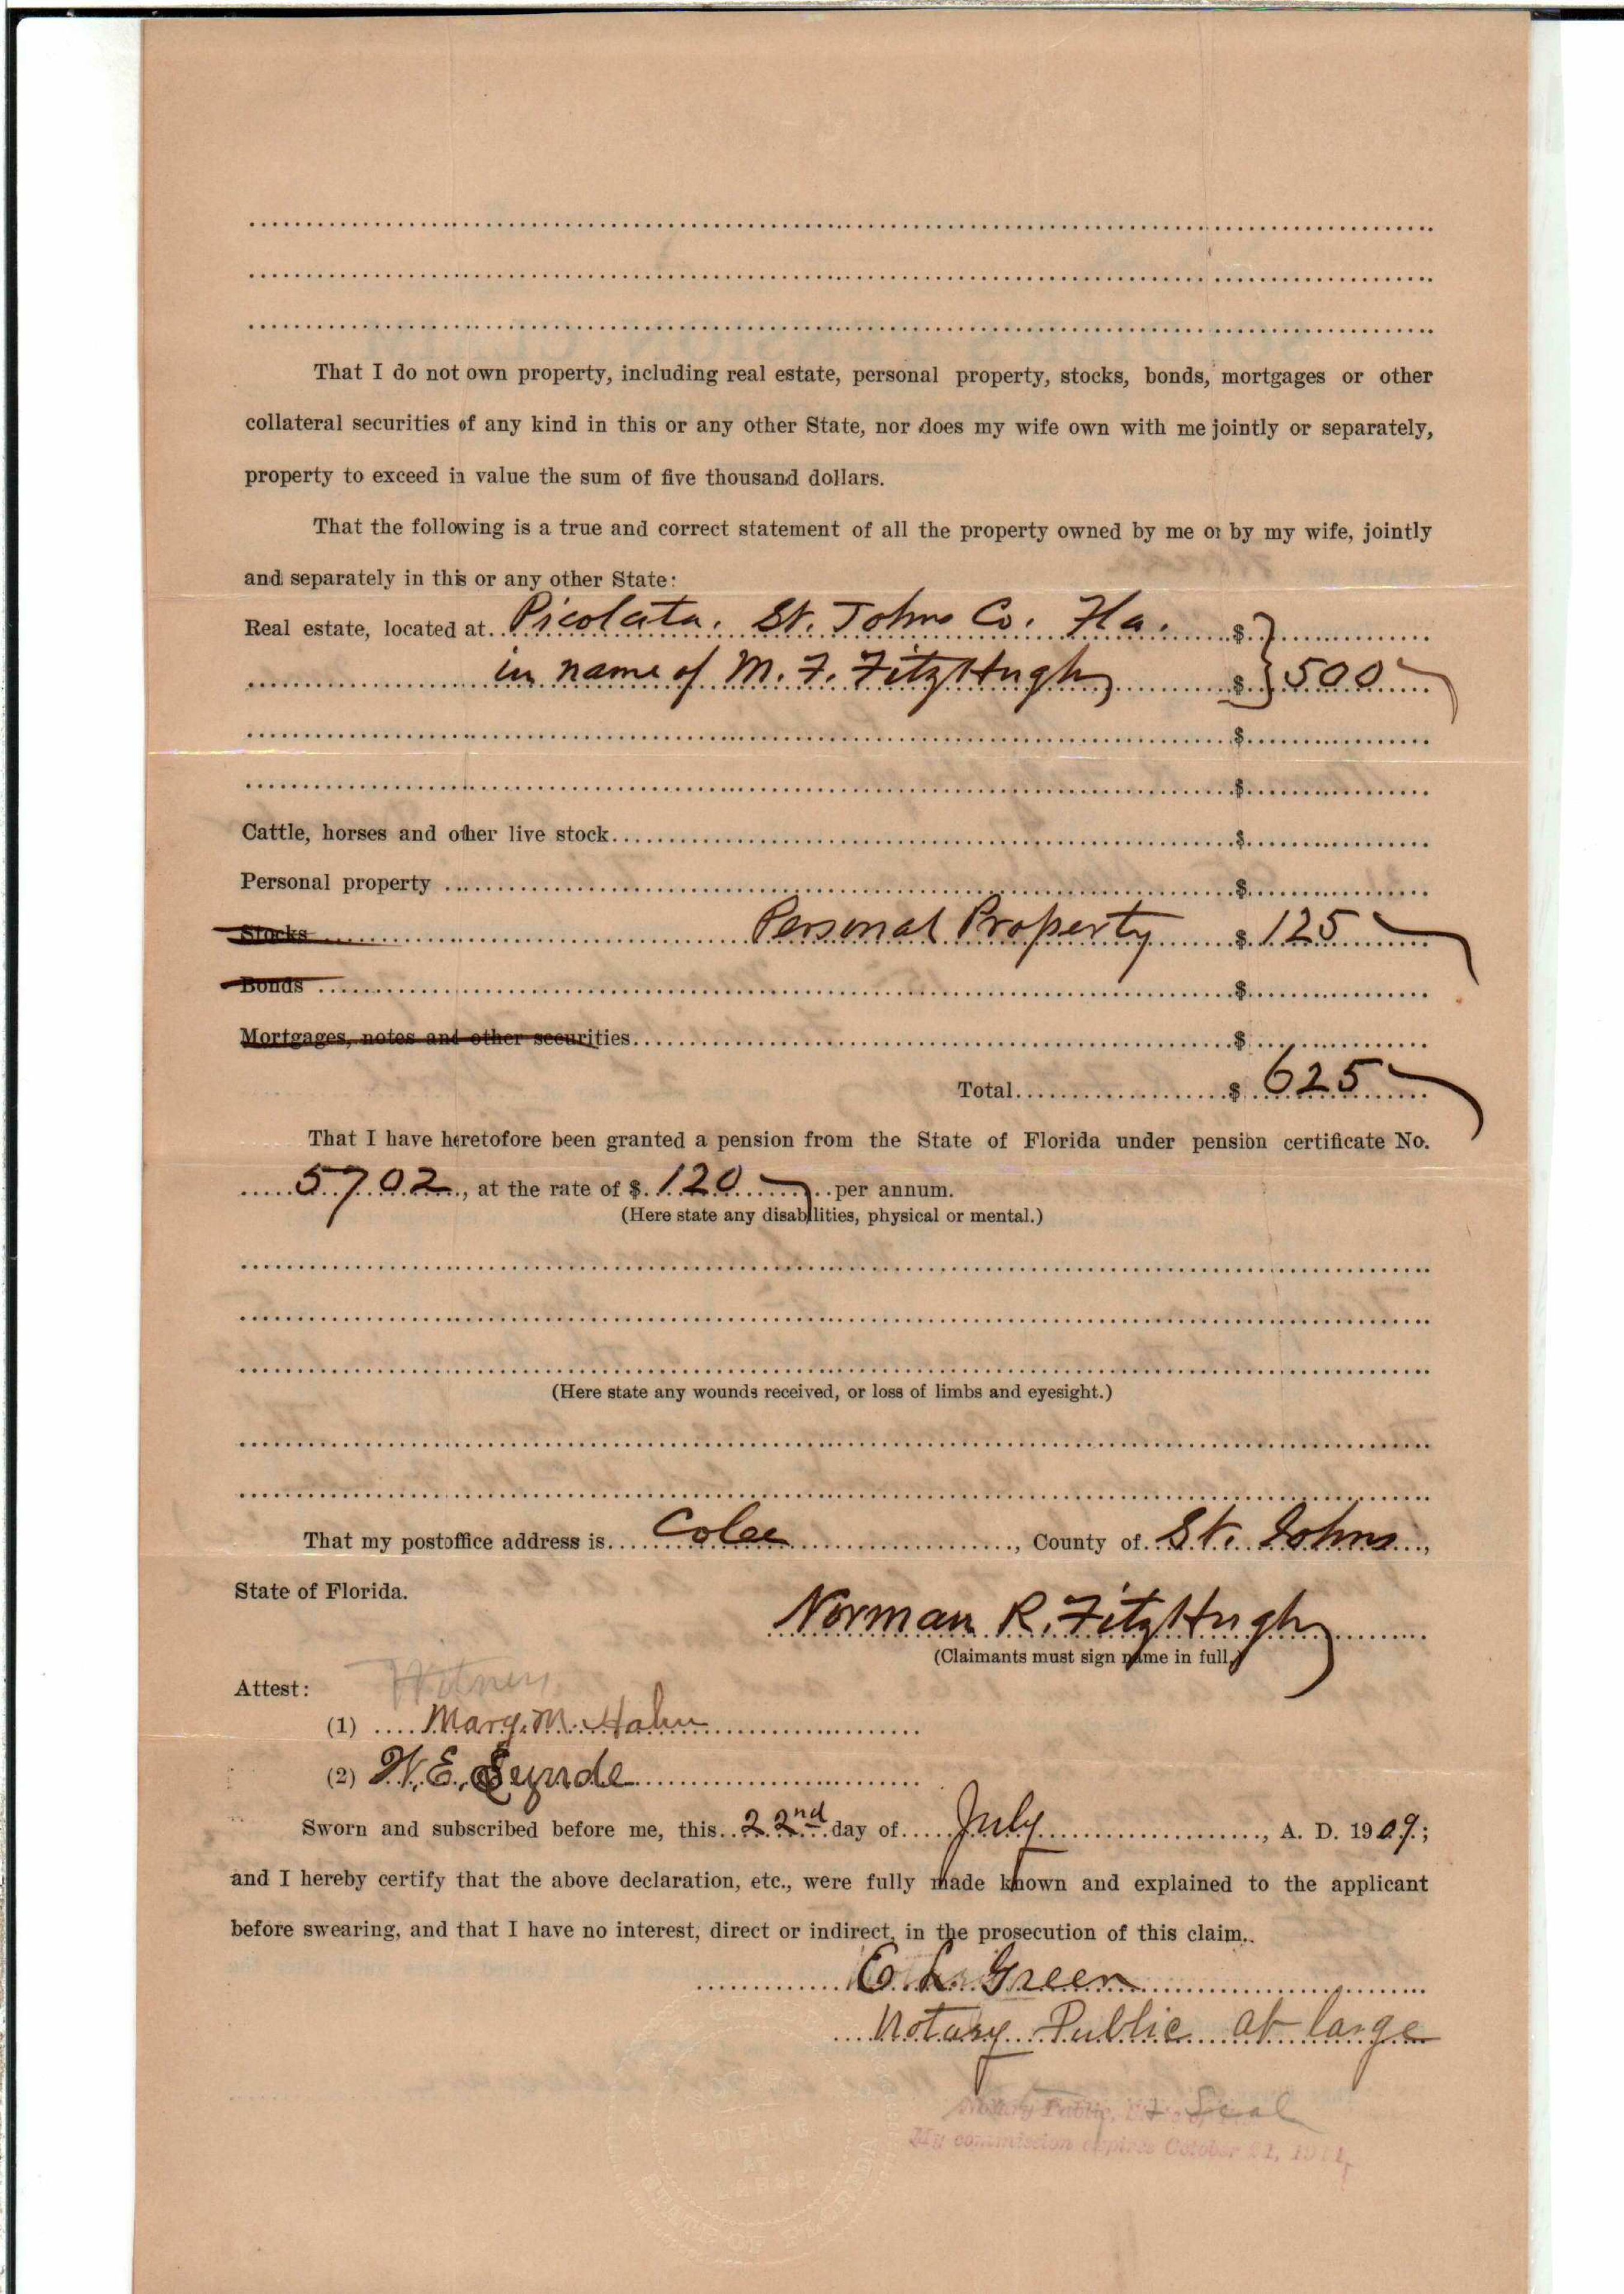 That I do not own property, including real estate, personal property, stocks, bonds, mortgages or other
collateral securities of any kind in this or any other State, nor does my wife own with me jointly or separately,
property to exceed in value the sum of five thousand dollars.
That the following is a true and correct statement of all the property owned by me or by my wife, jointly
and separately in this or any other State:
Real estate, located at Picolata. St. Johns Co. Fla. $
in name of M. F. FitzHugh $ 500
$
$
Cattle, horses and other live stock $
Personal property $
Stocks Personal Property $ 125
Bonds $
Mortgages, notes and other securities $
Total $ 625
That I have heretofore been granted a pension from the State of Florida under pension certificate No.
5702, at the rate of $ 120 per annum.
(Here state any disabilities, physical or mental.)
(Here state any wounds received, or loss of limbs and eyesight.)
That my postoffice address is Colee, County of St. Johns,
State of Florida.
Norman R. FitzHugh
(Claimants must sign name in full.)
Attest:
(1) Mary M. Hahn
(2) W. E. Lynde
Sworn and subscribed before me, this 22nd day of July, A. D. 1909.;
and I hereby certify that the above declaration, etc., were fully made known and explained to the applicant
before swearing, and that I have no interest, direct or indirect, in the prosecution of this claim.
E. L. Green
Notary Public at large
Notary Public, Seal
My commission expires October 21, 1911